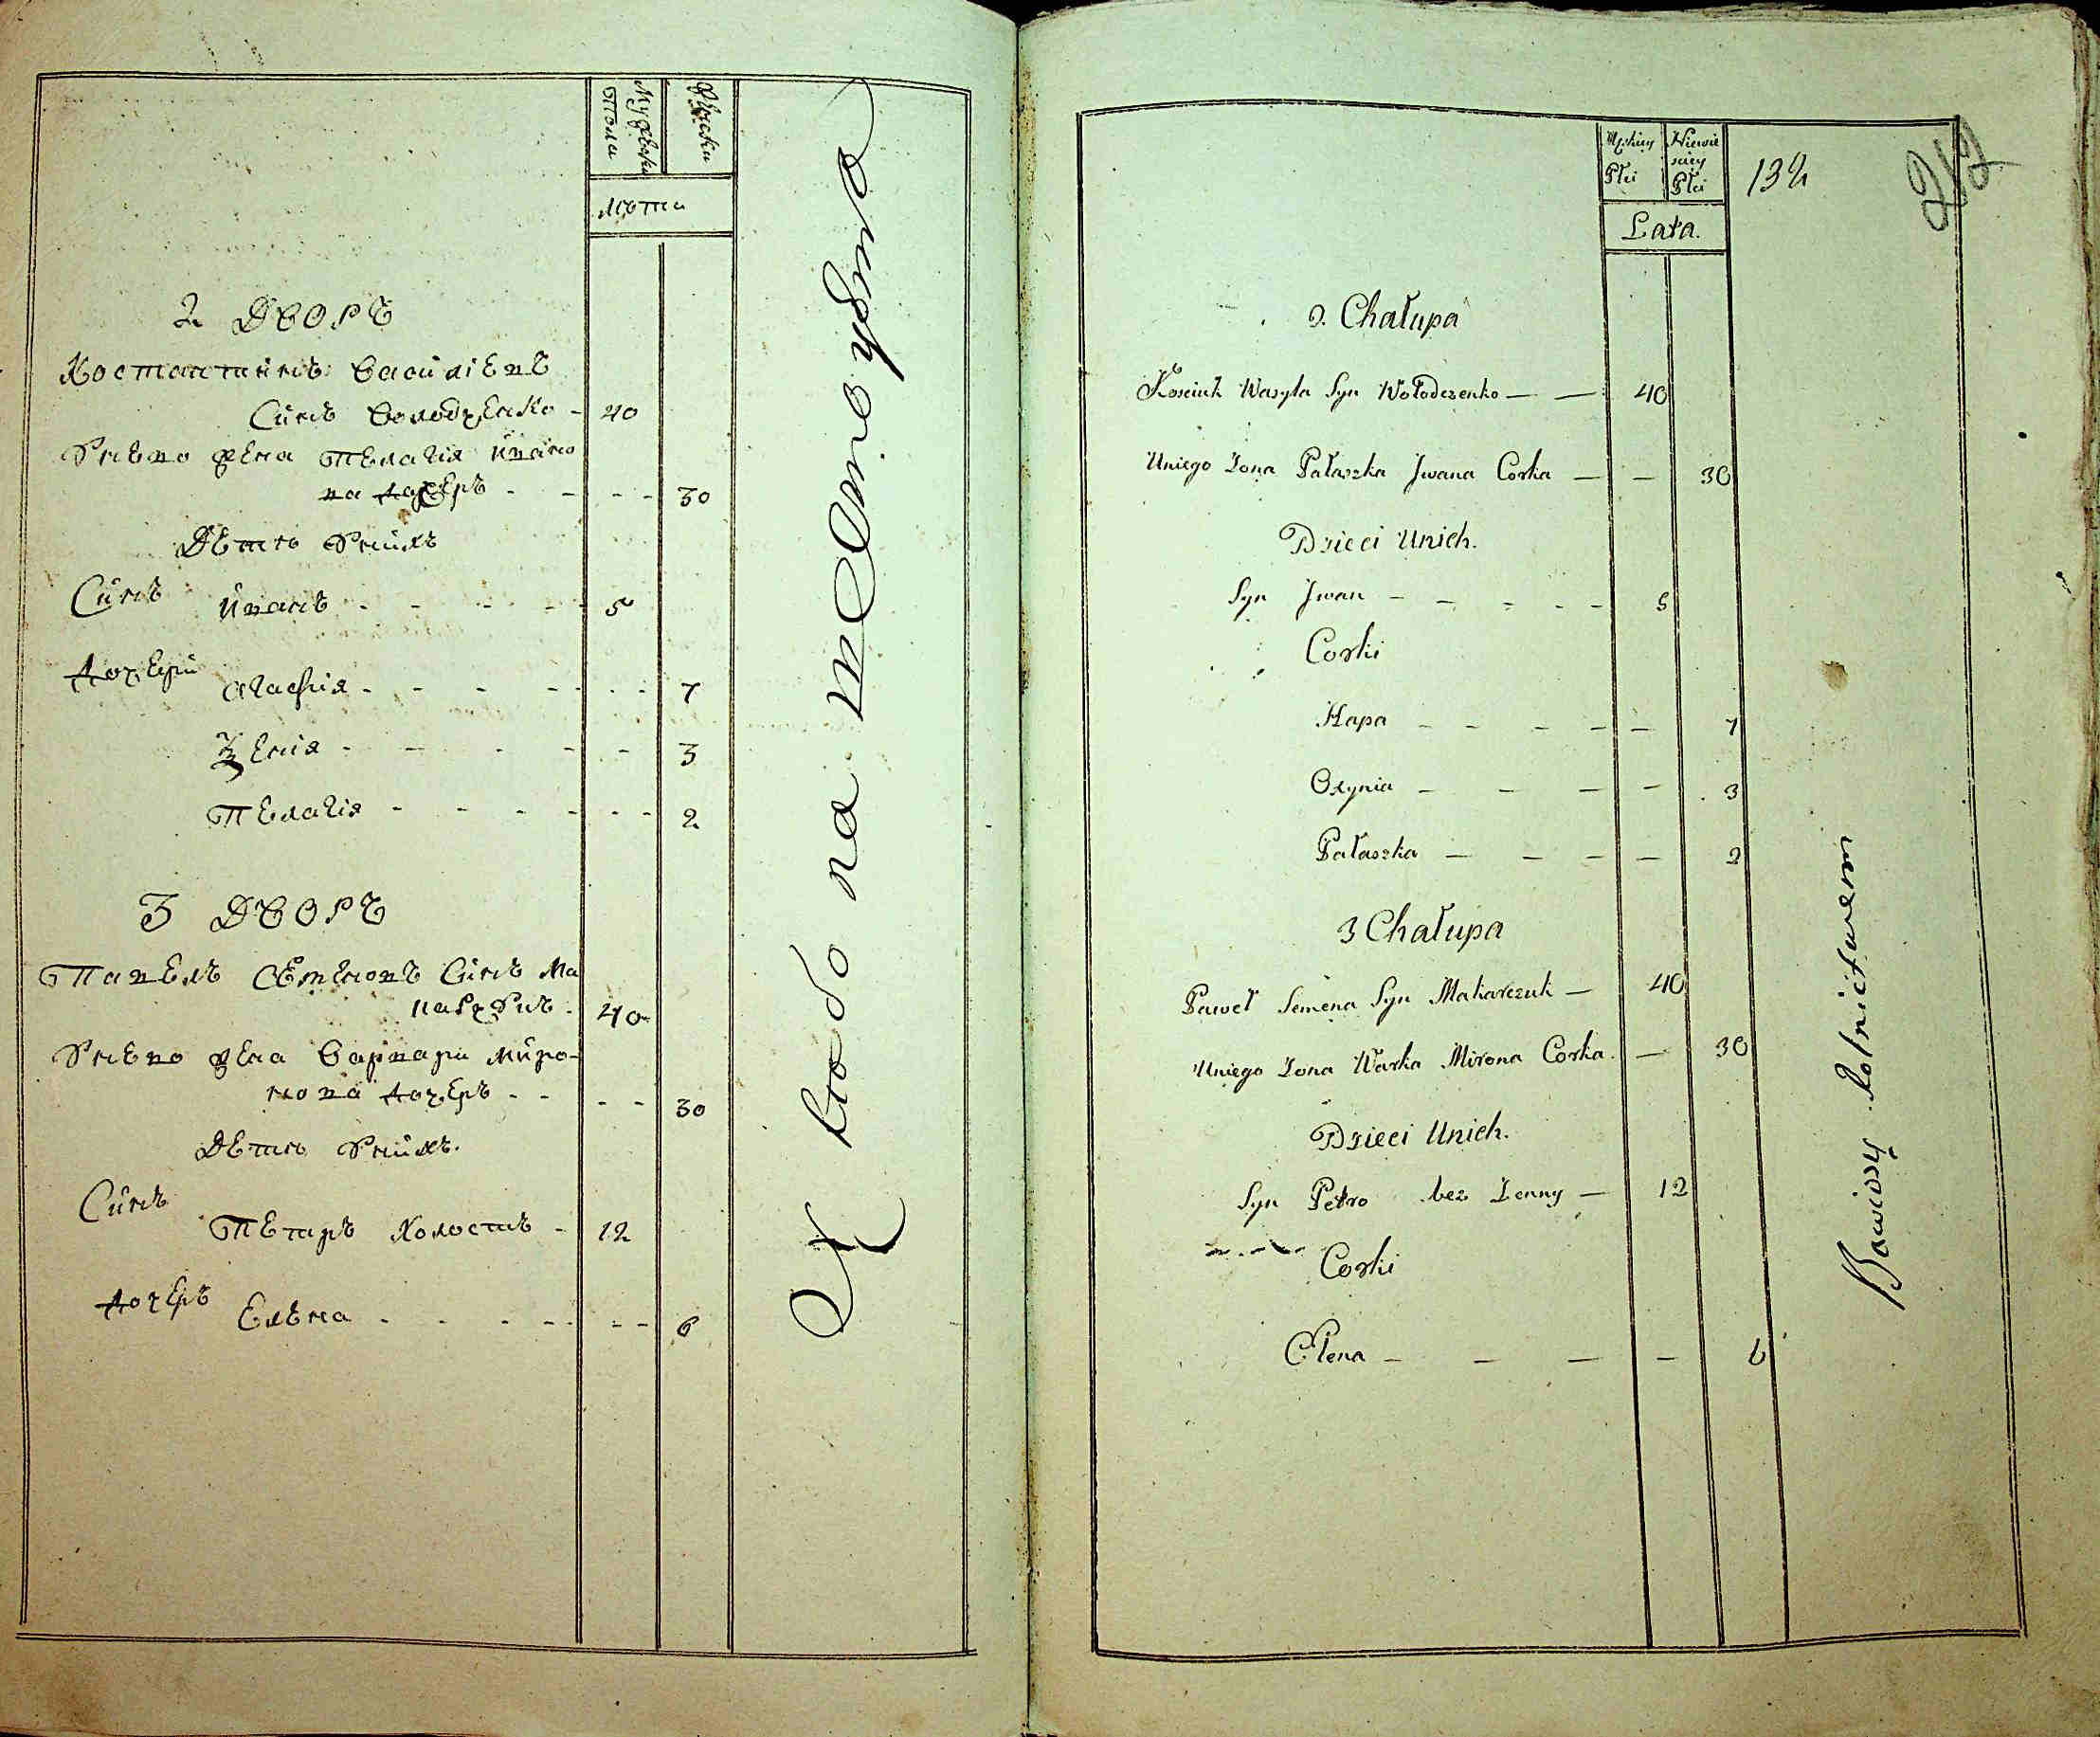 Мужеска
Пола
Женска
Лѣта
2 ДВОРЪ
Костантинъ Василіевъ
Синъ Володченко - 40
Унево жена Пелагія Ивано
ва дочеръ - - - - 30
Дети Унихъ
Синъ Иванъ - - - - 5
Дочери Агафия - - - - - - 7
Ксения - - - - - 3
Пелагия - - - - - - 2
3 ДВОРЪ
Павелъ Семеновъ Синъ Ма
карчукъ - 40
Унево жена Варвари Миро-
нова дочеръ - - - - 30
Дети Унихъ.
Синъ
Петаръ Холостъ - 12
Дочеръ Елена - - - - - - - 6
Męskiey
Płci
Niewie
sciey
Płci
132
217
Lata.
2. Chałupa
Kosciuk Wasyla Syn Wołodczenko — — 40
Uniego Zona Pałaszka Jwana Corka — — 30
Dzieci Unich.
Syn Jwan - - - - - 5
Corki
Hapa - - - - - 7
Oxynia - - - - 3
Pałaszka — - - - 2
3 Chałupa
Paweł Semena Syn Makarczuk — 40
Uniego Zona Warka Mirona Corka. — 30
Dzieci Unich.
Syn Petro bez Zenny — 12
Corki
Elena - — — — 6
Bawiący Rolnictwem